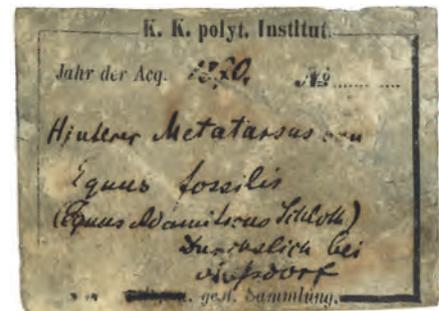 K. K. polyt. Institut.
Jahr der Acq. 1870. No
Hinterer Metatarsus von
Equus fossilis
(Equus Adamiticus Schloth)
Durchstich bei
Nußdorf
u. geol. Sammlung.